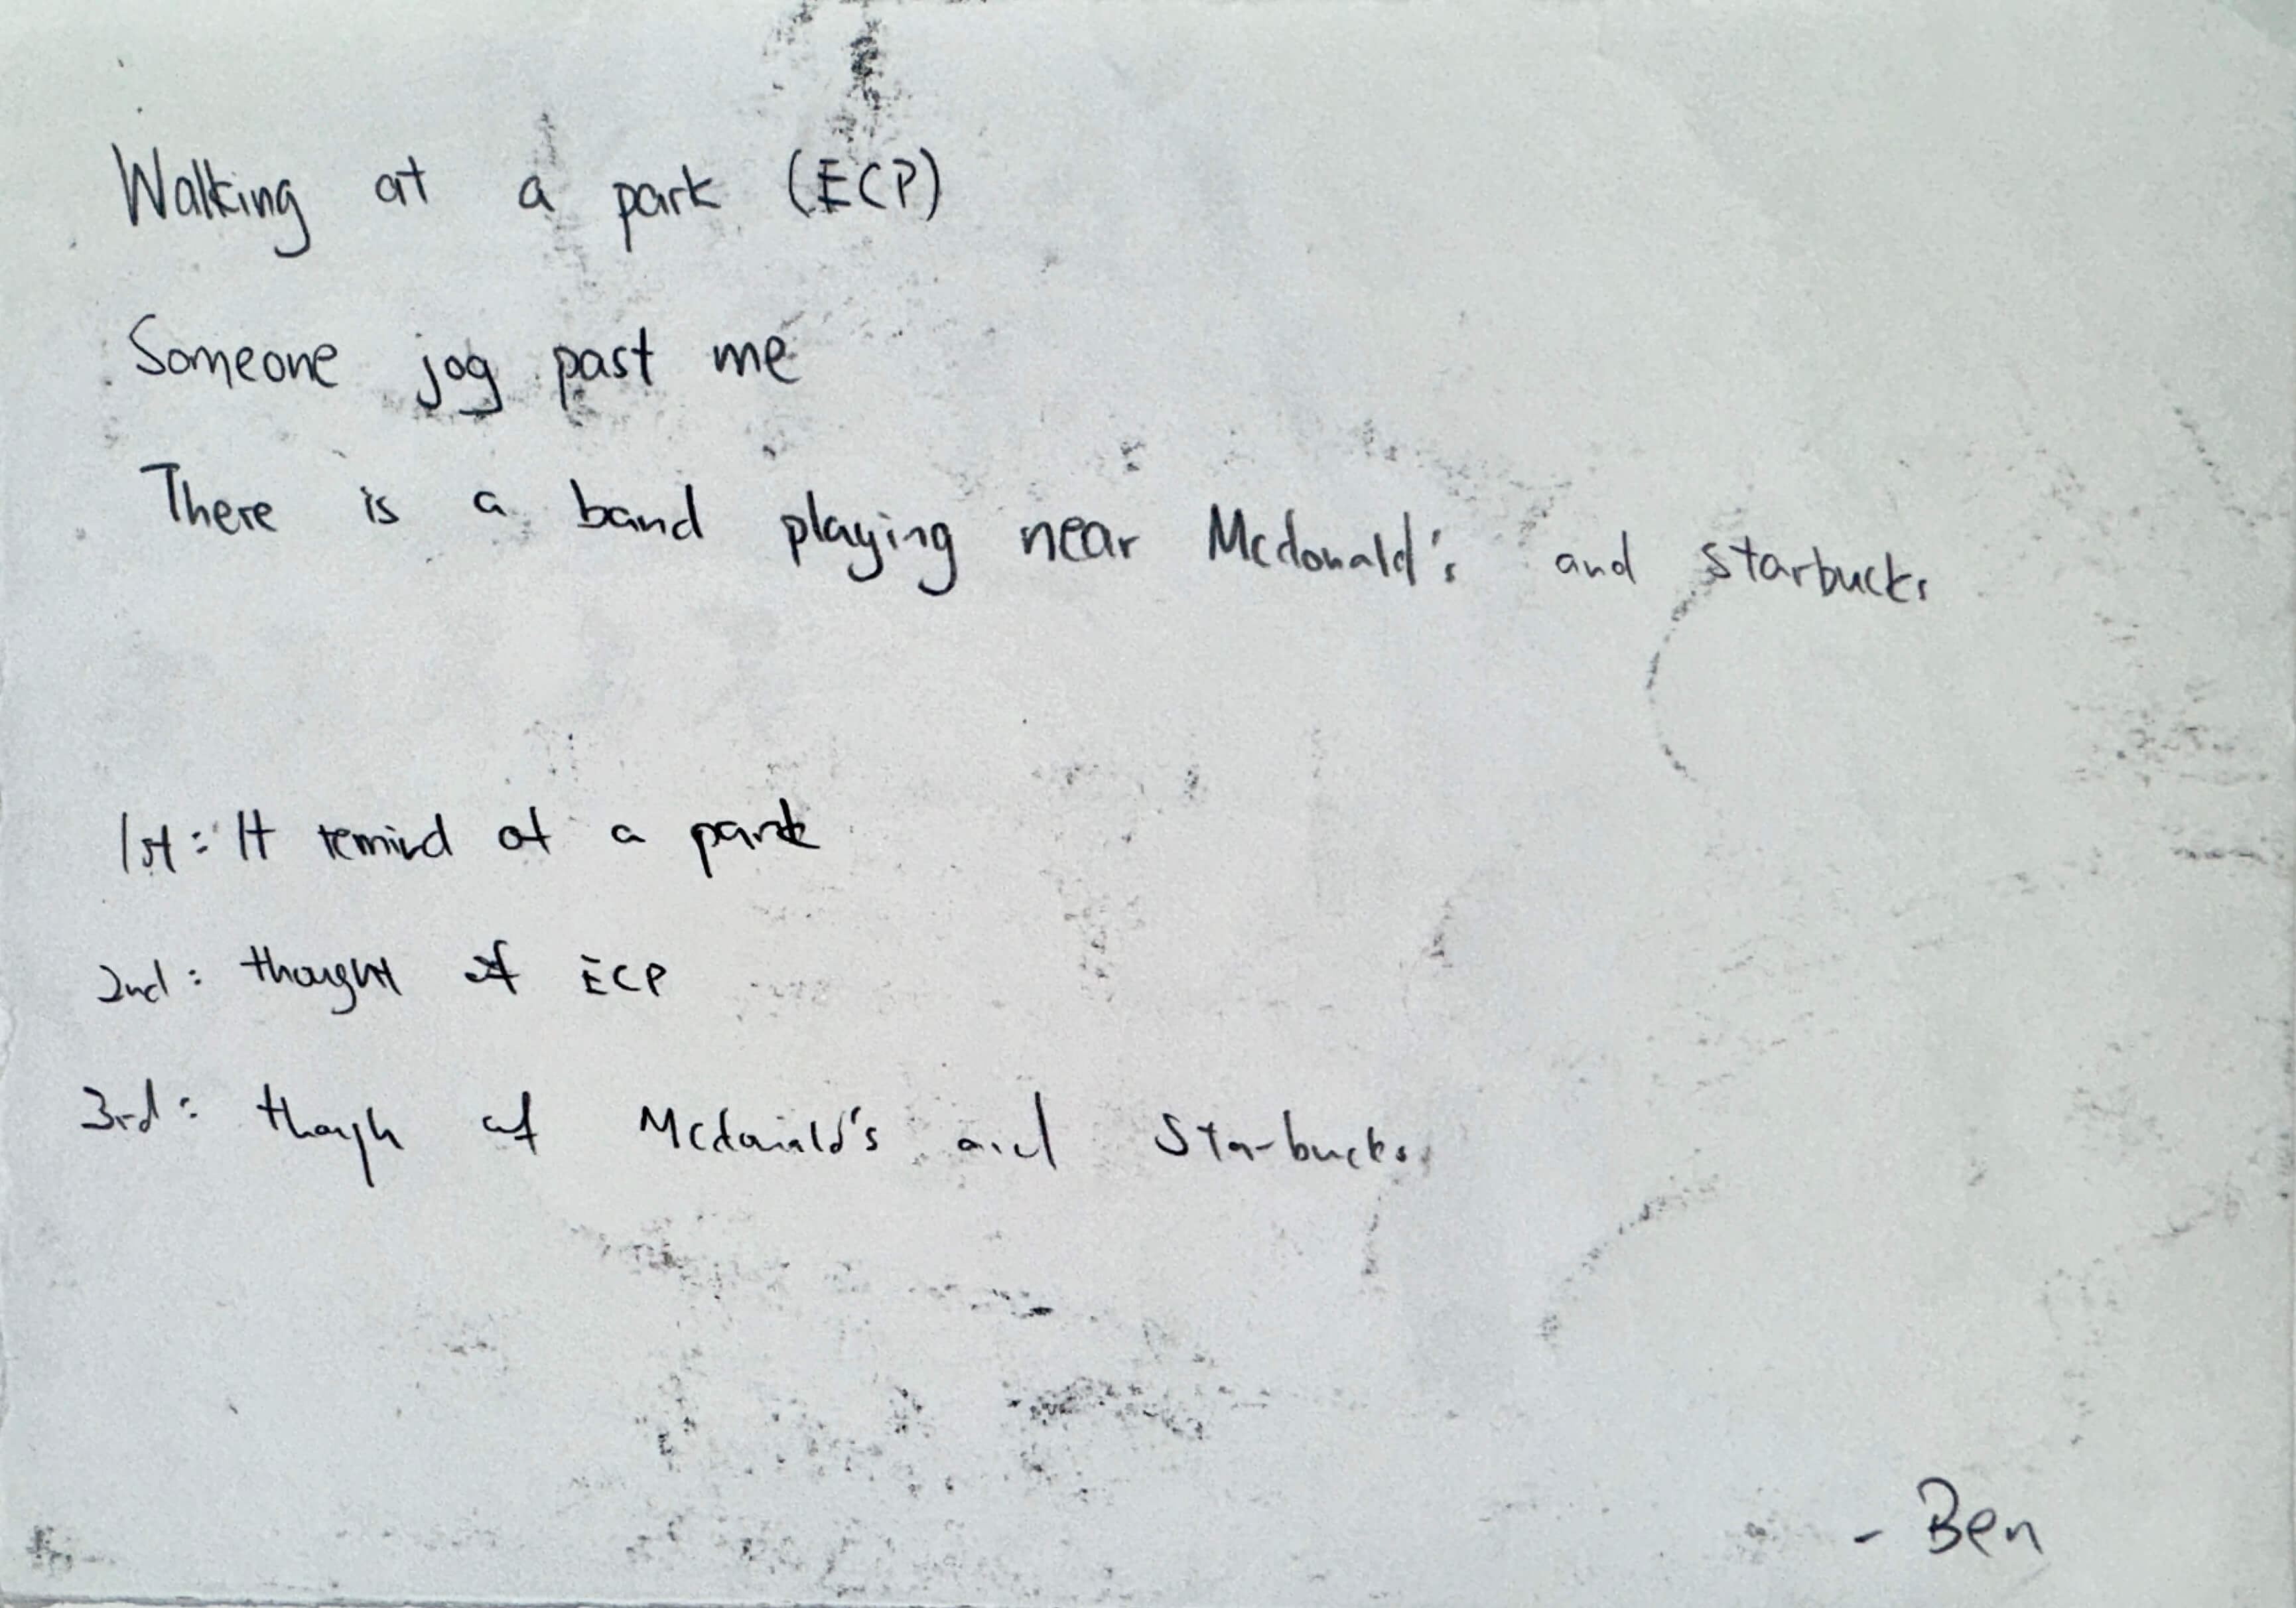 Walking at a park (ECP)
Someone jog past me
There is a band playing near Mcdonald's and starbucks
1st: It remind of a park
2nd: thought of ECP
3rd: though of Mcdonald's and Starbucks
- Ben